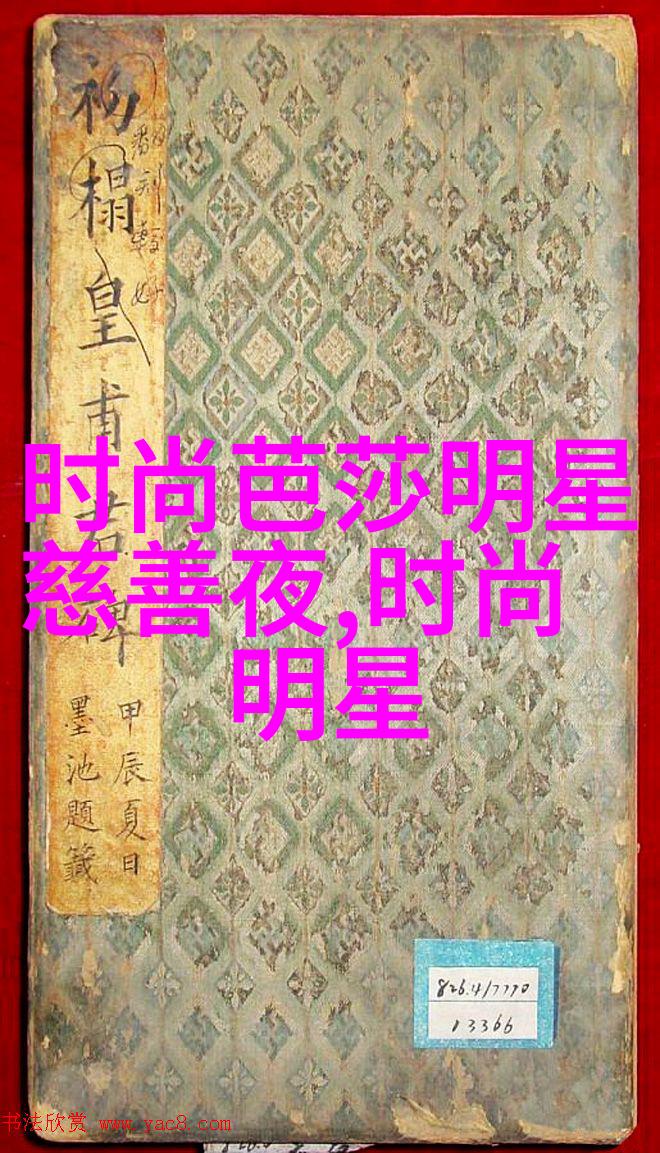 初榻皇甫君碑
翻刻較好
甲辰夏日
墨池題籤
时尚芭莎明星
慈善夜,时尚
明星
826.4/7770
13366
书法欣赏 www.yac8.com